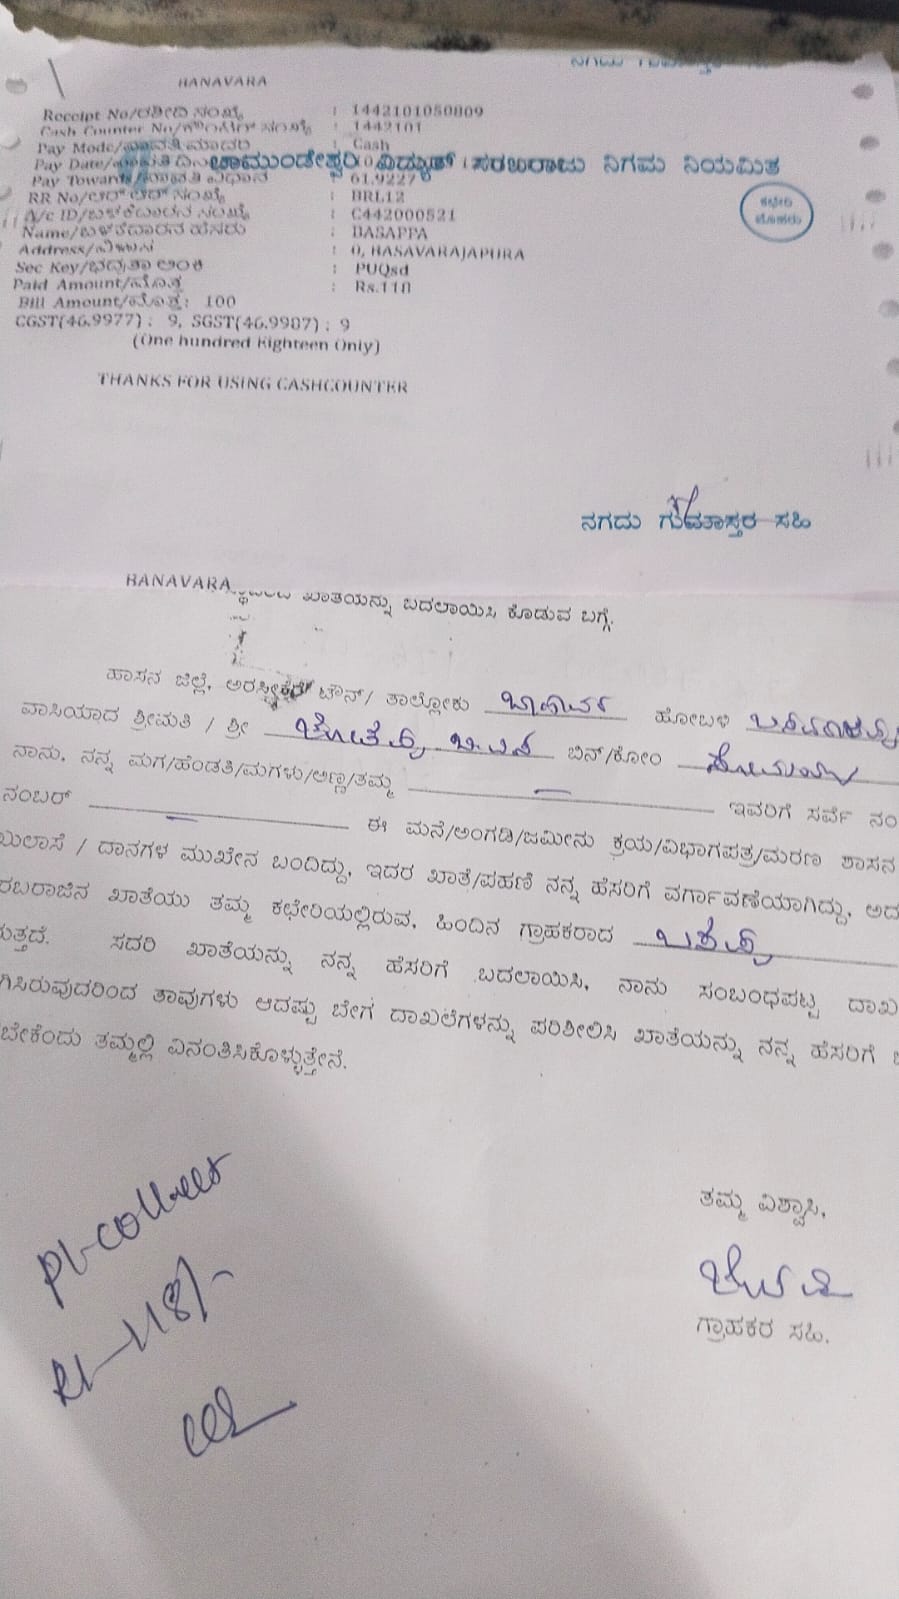 BANAVARA
Receipt No/ರಶೀದಿ ಸಂಖ್ಯೆ : 1442101050809
Cash Counter No/ಕೌಂಟರ್ ಸಂಖ್ಯೆ : 1442101
Pay Mode/ಪಾವತಿ ಮಾದರಿ : Cash
Pay Date/ಪಾವತಿ
ಚಾಮುಂಡೇಶ್ವರಿ ವಿದ್ಯುತ್ ಸರಬರಾಜು ನಿಗಮ ನಿಯಮಿತ
Pay Towards/ಪಾವತಿ ವಿಧಾನ : 61.9227
RR No/ಆರ್ ಆರ್ ಸಂಖ್ಯೆ : BRL12
A/c ID/ಬಳಕೆದಾರನ ಸಂಖ್ಯೆ : C442000521
Name/ಬಳಕೆದಾರನ ಹೆಸರು : BASAPPA
Address/ವಿಳಾಸ : 0, BASAVARAJAPURA
Sec Key/ಭದ್ರತಾ ಅಂಕಿ : PUQsd
Paid Amount/ಮೊತ್ತ : Rs.118
Bill Amount/ಮೊತ್ತ: 100
CGST(46.9977) : 9, SGST(46.9987) : 9
(One hundred Eighteen Only)
THANKS FOR USING CASHCOUNTER
ನಗದು ಗುಮಾಸ್ತರ ಸಹಿ
BANAVARA
ಖಾತೆಯನ್ನು ಬದಲಾಯಿಸಿ ಕೊಡುವ ಬಗ್ಗೆ.
ಹಾಸನ ಜಿಲ್ಲೆ, ಅರಸೀಕೆರೆ ಟೌನ್/ ತಾಲ್ಲೋಕು ಹೋಬಳಿ
ವಾಸಿಯಾದ ಶ್ರೀಮತಿ / ಶ್ರೀ ಬಿನ್/ಕೋಂ
ನಾನು, ನನ್ನ ಮಗ/ಹೆಂಡತಿ/ಮಗಳು/ಅಣ್ಣ/ತಮ್ಮ ಇವರಿಗೆ ಸರ್ವೆ ನಂ
ನಂಬರ್ ಈ ಮನೆ/ಅಂಗಡಿ/ಜಮೀನು ಕ್ರಯ/ವಿಭಾಗಪತ್ರ/ಮರಣ ಶಾಸನ
ಖುಲಾಸೆ / ದಾನಗಳ ಮುಖೇನ ಬಂದಿದ್ದು, ಇದರ ಖಾತೆ/ಪಹಣಿ ನನ್ನ ಹೆಸರಿಗೆ ವರ್ಗಾವಣೆಯಾಗಿದ್ದು, ಅದ
ರಬರಾಜಿನ ಖಾತೆಯು ತಮ್ಮ ಕಛೇರಿಯಲ್ಲಿರುವ, ಹಿಂದಿನ ಗ್ರಾಹಕರಾದ
ರುತ್ತದೆ. ಸದರಿ ಖಾತೆಯನ್ನು ನನ್ನ ಹೆಸರಿಗೆ ಬದಲಾಯಿಸಿ, ನಾನು ಸಂಬಂಧಪಟ್ಟ ದಾಖ
ಗಿಸಿರುವುದರಿಂದ ತಾವುಗಳು ಆದಷ್ಟು ಬೇಗ ದಾಖಲೆಗಳನ್ನು ಪರಿಶೀಲಿಸಿ ಖಾತೆಯನ್ನು ನನ್ನ ಹೆಸರಿಗೆ
ಬೇಕೆಂದು ತಮ್ಮಲ್ಲಿ ವಿನಂತಿಸಿಕೊಳ್ಳುತ್ತೇನೆ.
ತಮ್ಮ ವಿಶ್ವಾಸಿ,
ಗ್ರಾಹಕರ ಸಹಿ.
Pl-collect
Rs-118/-